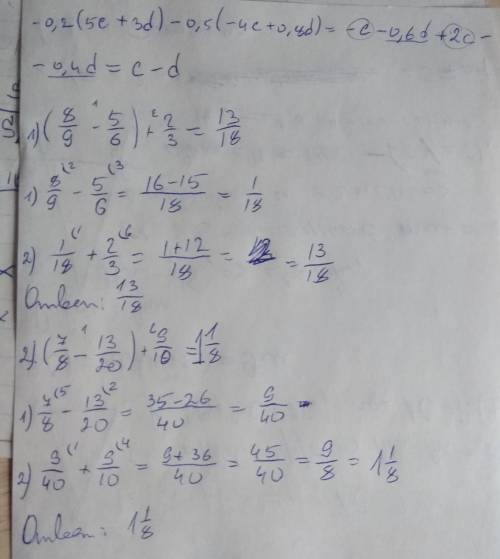 -0,2(5c + 3d) - 0,5(-4c + 0,8d) = -c - 0,6d + 2c -
- 0,4d = c - d
1) (8/9 - 5/6) + 2/3 = 13/18
1) 8/9 - 5/6 = (16-15)/18 = 1/18
2) 1/18 + 2/3 = (1+12)/18 = = 13/18
Ответ: 13/18
2) (7/8 - 13/20) + 9/10 = 1 1/8
1) 7/8 - 13/20 = (35-26)/40 = 9/40
2) 9/40 + 9/10 = (9+36)/40 = 45/40 = 9/8 = 1 1/8
Ответ: 1 1/8